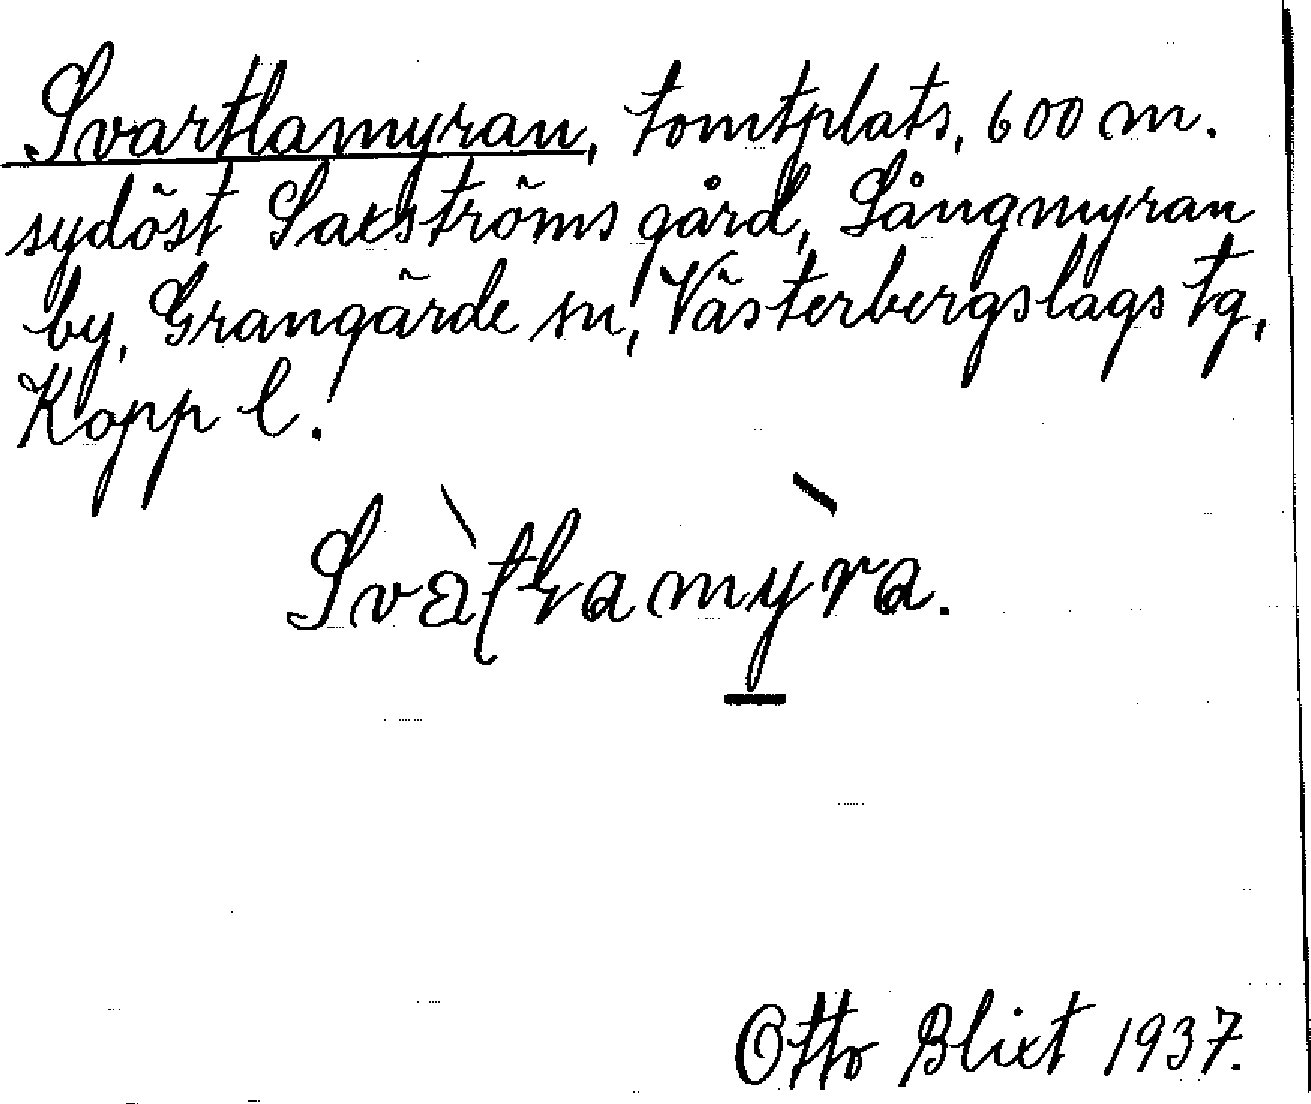 Svartlamyran, tomtplats, 600 m.
sydöst Saxströms gård, Långmyran
by, Grangärde sn, Västerbergslags tg,
Kopp l.
Otto Blixt 1937.